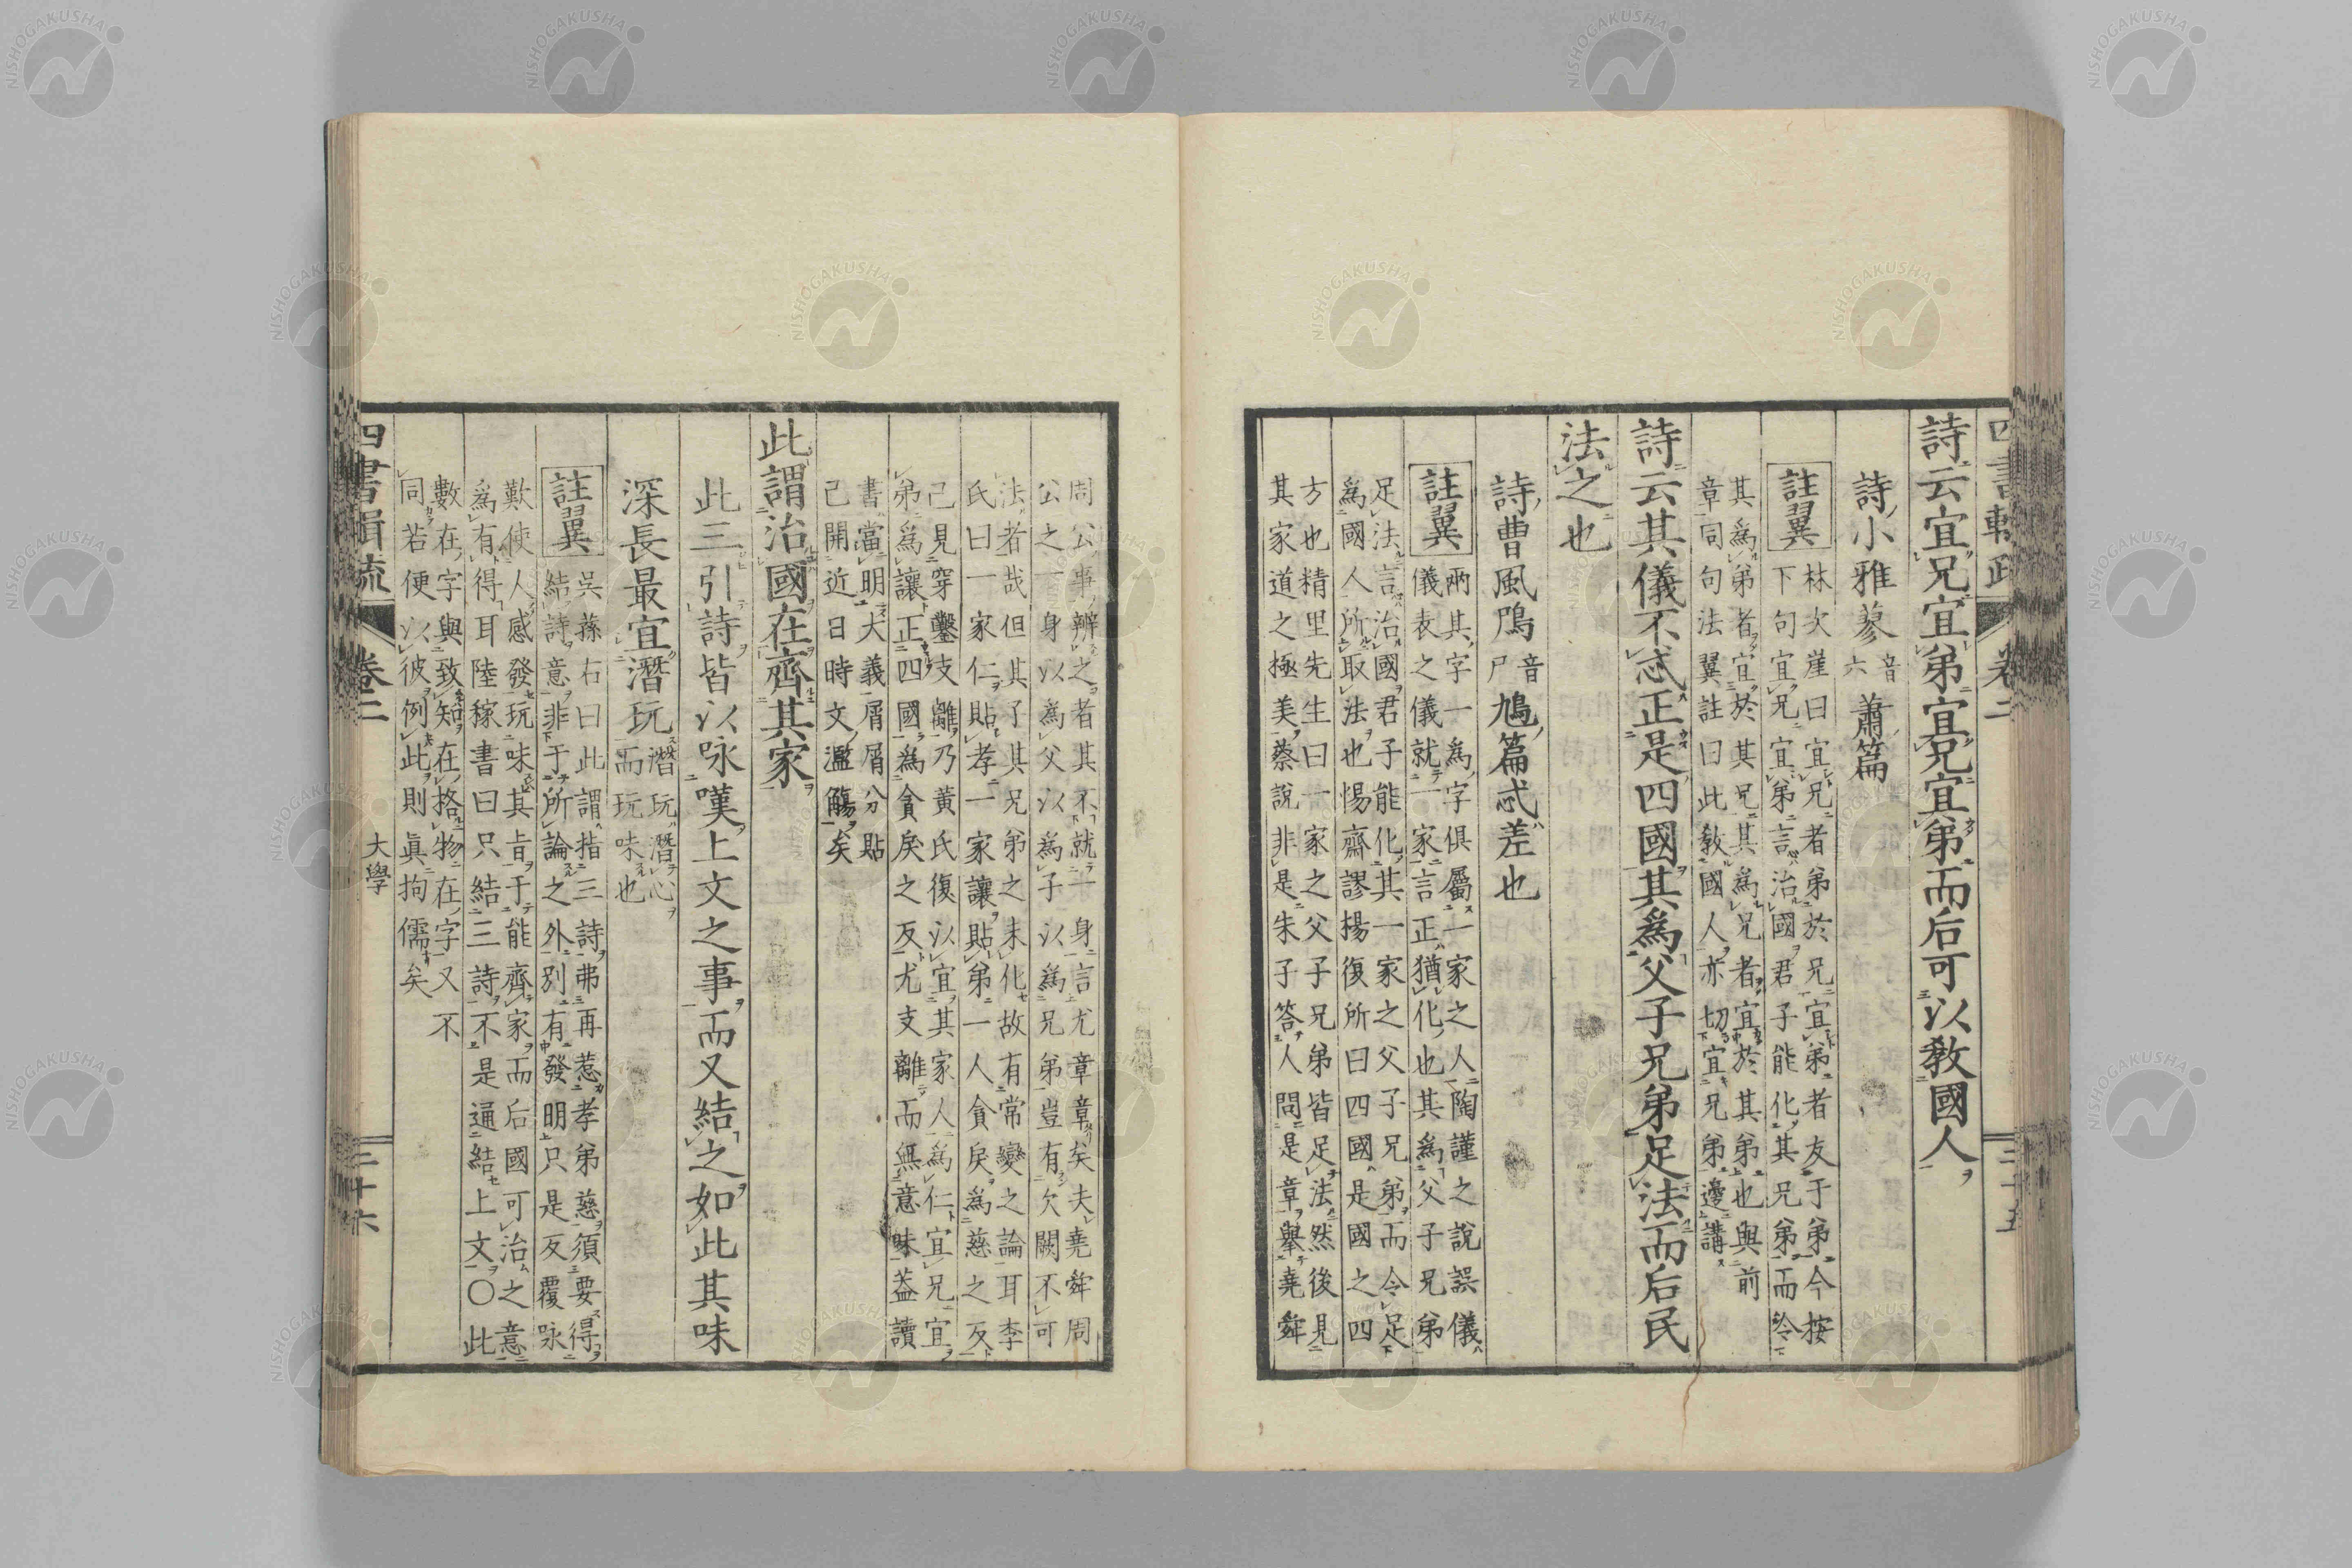 詩云宜兄宜弟宜兄宜弟而后可以敎國人
詩小雅蓼音六蕭篇
註翼
林次崖曰宜兄者弟於兄宜弟者友于弟今按
下句宜兄宜弟言治國君子能化其兄弟而令
其爲弟者宜於其兄其爲兄者宜於其弟也與前
章同句法翼註曰此敎國人亦切宜兄弟邊講
詩云其儀不忒正是四國其爲父子兄弟足法而后民
法之也
詩曹風鳲音尸鳩篇忒差也
註翼
兩其字一爲字俱屬一家之人陶謹之說誤儀
儀表之儀就一家言正猶化也其爲父子兄弟
足法言治國君子能化其一家之父子兄弟而令足
爲國人所取法也惕齋謬揚復所曰四國是國之四
方也精里先生曰一家之父子兄弟皆足法然後見
其家道之極美蔡說非是朱子答人問是章擧堯舜
周公事辨之者其不就一身言尤章章矣夫堯舜周
公之一身以爲父以爲子以爲兄弟豈有欠闕不可
法者哉但其子其兄弟之未化故有常變之論耳李
氏曰一家仁貼孝一家讓貼弟一人貪戾爲慈之反
已見穿鑿支離乃黃氏復以宜其家人爲仁宜兄宜
弟爲讓正四國爲貪戾之反尤支離而無意味蓋讀
書當明大義屑屑分貼
已開近日時文濫觴矣
此謂治國在齊其家
此三引詩皆以咏嘆上文之事而又結之如此其味
深長最宜潛玩潛玩潛心而玩味也
註翼
吳蓀右曰此謂指三詩弗再惹孝弟慈須要得
結詩意非于所論之外別有發明只是反覆咏
歎使人感發玩味其旨于能齊家而后國可治之意
爲有得耳陸稼書曰只結三詩不是通結上文〇此
數在字與致知在格物在字又不
同若便以彼例此則眞拘儒矣
四書輯疏
卷二
大學
三十六